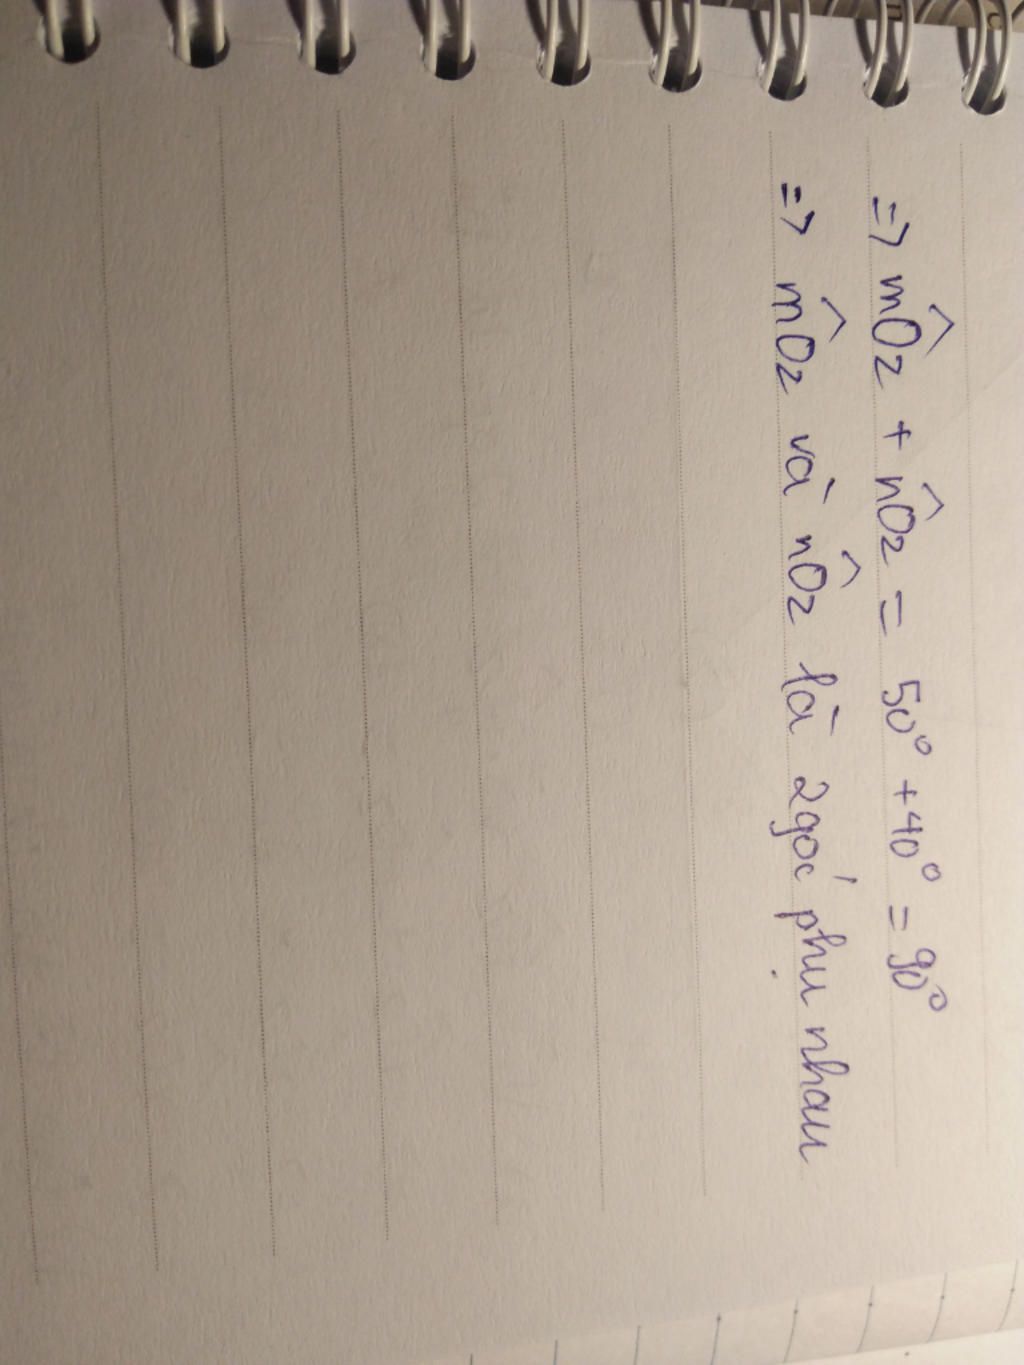 => mOz^ + nOz^ = 50° + 40° = 90°
=> mOz^ và nOz^ là 2 góc phụ nhau